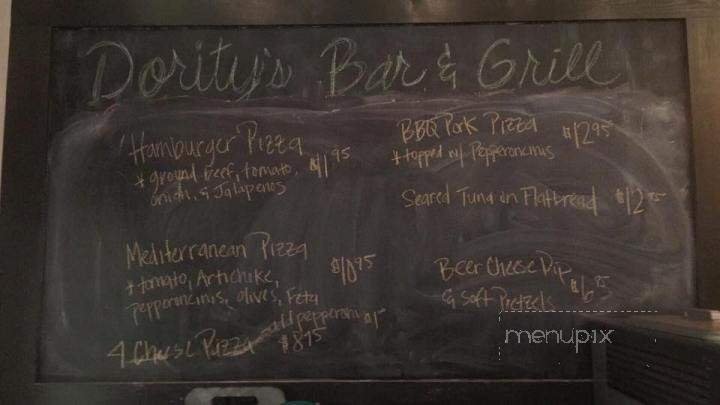 Dority's Bar & Grill
Hamburger Pizza
* ground beef, tomato, $11.95
onion, & Jalapenos
Mediterranean Pizza
* tomato, Artichike, $10.95
pepperoncinis, olives, Feta
add pepperoni $1
4 Cheese Pizza $8.95
BBQ Pork Pizza $12.95
* topped w/ Pepperoncinis
Seared Tuna on Flatbread $12
Beer Cheese Dip
& Soft Pretzels $6
menupix